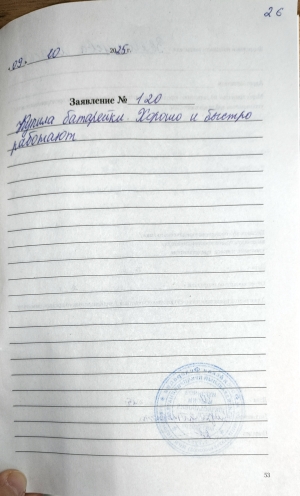 26
"09" 10 2025г.
Заявление № 120
Купила батарейки Хорошо и быстро
работают
53